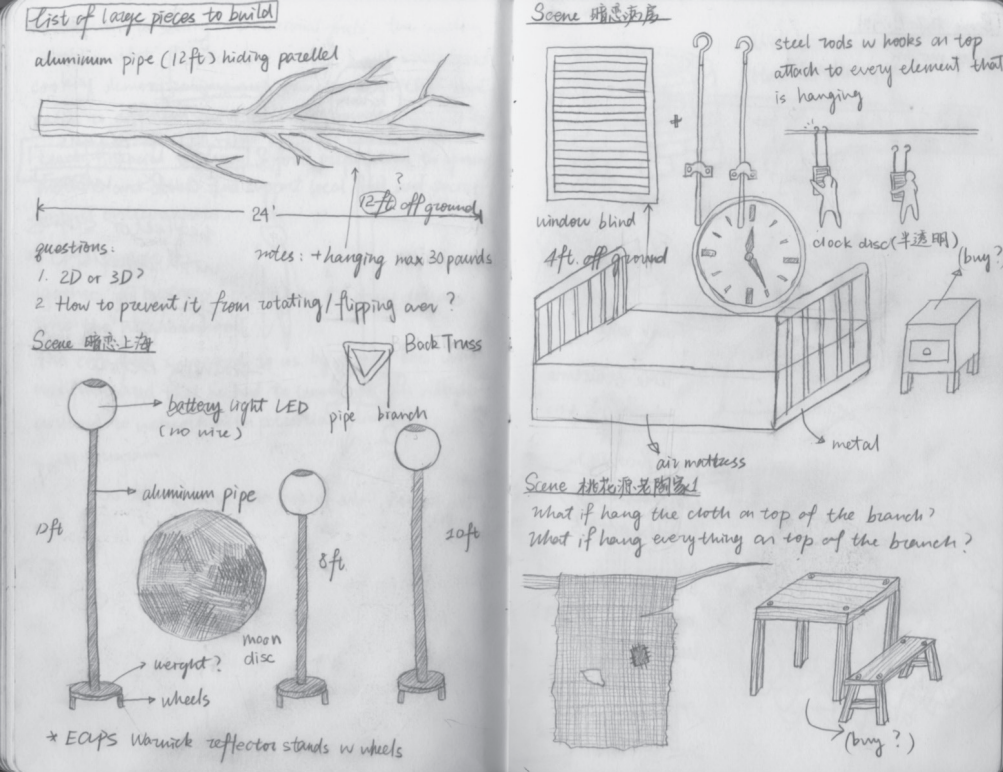 list of large pieces to build
aluminum pipe (12ft) hiding parellel
?
12ft off ground
24'
notes: + hanging max 30 pounds
questions:
1. 2D or 3D?
2. How to prevent it from rotating/flipping over?
Scene 暗恋上海
Book Truss
pipe branch
battery light LED
(no wire)
aluminum pipe
12ft
8ft
10ft
moon
disc
weight?
wheels
* EQUPS Warwick reflector stands w wheels
Scene 暗恋病房
steel rods w hooks on top
attach to every element that
is hanging
+
window blind
4ft. off ground
clock disc(半透明)
(buy?)
metal
air mattress
Scene 桃花源老陶家1
What if hang the cloth on top of the branch?
What if hang everything on top of the branch?
(buy?)